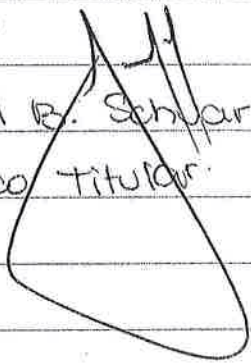 B. Schvar
co Titular.